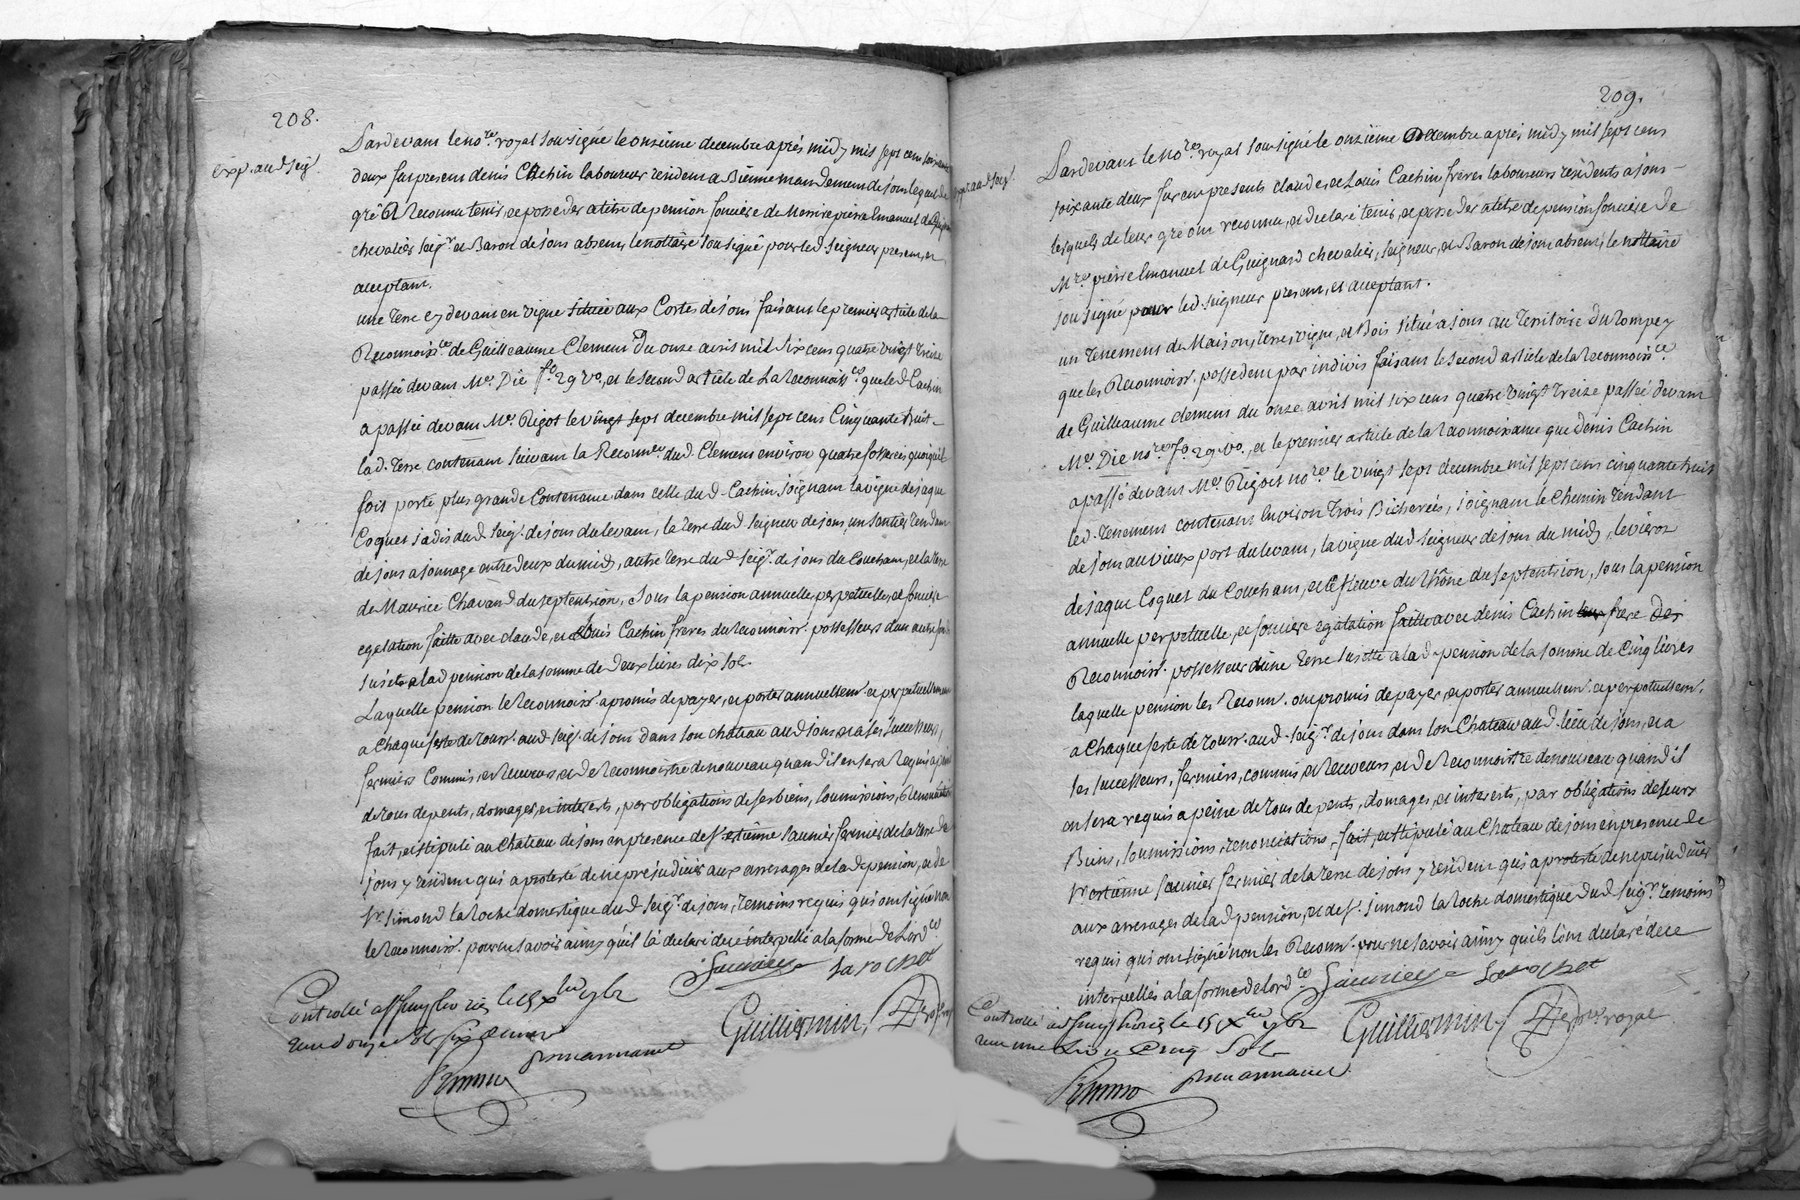 208.
Exp. aud seig.r
Pardevant le no.re royal sousigné le onzieme decembre après midy mil sept cens soixante
deux fut present denis Cachin laboureur résident a Bienne mandement de jons lequel de
gré A Reconnu tenir, et posseder a titre de pension fonciere de Messire pierre Emanuel de Guignard
chevalier seig.r et Baron de jons absent, le nottaire sousigné pour led. seigneur present, et
acceptant.
une terre cy devant en vigne située aux Cortes de jons faisant le premier article de la
Reconnoiss.ce de Guilleaume Clement Du onze avril mil six cens quatre vingt treize
passée devant M.e Die f.o 29 v.o, et le second article de La Reconnoiss.ce que led. Cachin
a passée devant M.e Rigot le vingt sept decembre mil sept cens Cinquante huit
lad. terre contenant suivant la Reconn.ce dud. Clement environ quatre fosserées quoiqu'il
soit porté plus grande Contenance dans celle dud. Cachin joignant la vigne de jaque
Coquet jadis dud. seig.r de jons du levant, la terre dud. seigneur de jons un sentier tendant
de jons a jonnage entre deux du midy, autre terre dud. seig.r de jons du Couchant, et la terre
de Maurice Chavand du septentrion, Sous la pension annuelle, perpetuelle, et fonciere
egalation faitte avec claude, et Louis Cachin freres du Reconnoiss. possesseurs d'un autre fond
sujet a lad. pension de la somme de deux livres dix sols
Laquelle pension le Reconnoiss. a promis de payer, et porter annuellem. et perpetuellement
a chaque feste de touss. aud. seig.r de jons dans son chateau aud. jons, et a ses successeurs,
fermiers Commis, et Receveurs, et de Reconnoistre de nouveau quand il en sera Requis a peine
de tous depents, domages, et interets, par obligations de ses biens, soumissions, Renonciations
fait, et stipulé au Chateau de jons en presence de s.r etienne saunier fermier de la terre de
jons y résident qui a protesté de ne préjudicier aux arrerages de lad. pension, et de
s.r simond La Roche domestique dud. seig.r de jons, temoins requis qui ont signé non
le Reconnoiss. pour ne savoir ainsy qu'il l'a declaré de ce interpellé a la forme de L'ord.ce
Saunier Laroche
Controllé a le
reçu douze sols six deniers
Guilliermin, no.re royal
209.
Exp. aud seig.r
Pardevant le no.re royal sousigné le onzieme Decembre après midy mil sept cens
soixante deux furent presents claude, et Louis Cachin frères laboureurs résidents a jons
lesquels de leur gré ont reconnu, et declaré tenir, et posseder a titre de pension fonciere de
M.re pierre Emanuel de Guignard chevalier, seigneur, et Baron de jons absent, le nottaire
sousigné pour led. seigneur present, et acceptant.
un tenement de Maison, terre, vigne, et Bois situé a jons au teritoire du Pompey
que les Reconnoiss. possedent par indivis faisant le second article de la Reconnoiss.ce
de Guilleaume clement du onze avril mil six cens quatre vingt treize passée devant
M.e Die no.re f.o 29 v.o, et le premier article de la reconnoissance que denis Cachin
a passé devant M.e Rigot no.re le vingt sept decembre mil sept cens cinquante huit
led. tenement contenant environ trois Bicherées, joignant le Chemin tendant
de jons au vieux port du levant, la vigne dud. seigneur de jons du midy, le
de jaque Coquet du Couchant, et le fleuve du Rhône du septentrion, sous la pension
annuelle perpetuelle, et fonciere egalation faitte avec denis Cachin leur frere des
Reconnoiss. possesseur d'une terre sujette a lad. pension de la somme de Cinq livres
laquelle pension les Reconn. ont promis de payer, et porter annuellem. et perpetuellem.
a Chaque feste de touss. aud. seig.r de jons dans son Chateau aud. lieu de jons, et a
ses successeurs, fermiers, commis et Receveurs, et de Reconnoistre de nouveau quand il
en sera requis a peine de tous depents, domages, et interets, par obligations de leurs
Biens, soumissions, renonciations, fait, et stipulé au Chateau de jons en presence de
s.r etienne saunier fermier de la terre de jons y résident qui a protesté de ne préjudicier
aux arrerages de lad. pension, et de s.r simond la Roche domestique dud. seig.r temoins
requis qui ont signé non les Reconn. pour ne savoir ainsy qu'ils l'ont declaré de ce
interpellés a la forme de l'ord.ce Saunier Laroche
Controllé a le
reçu une Livre Cinq Sols
Guilliermin, no.re royal